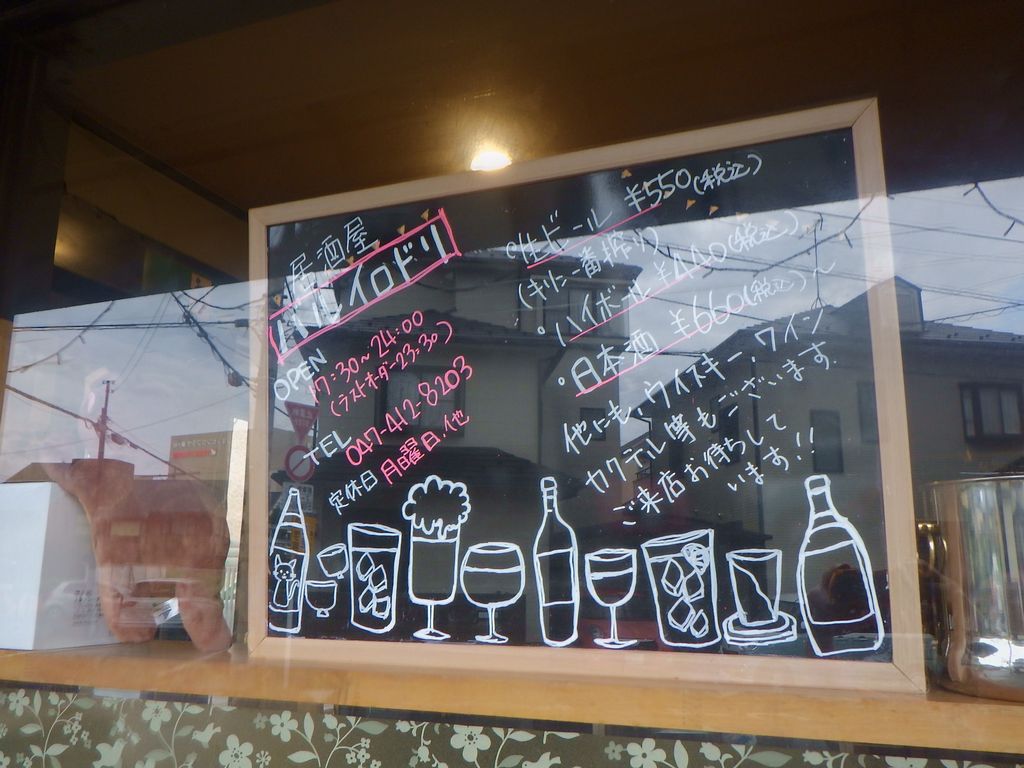 居酒屋
バルイロドリ
OPEN
17:30~24:00
(ラストオーダー23:30)
TEL
047-412-8203
定休日 月曜日、他
・生ビール ¥550(税込)
(キリン一番搾り)
・ハイボール ¥440(税込)
・日本酒 ¥660(税込)~
他にも、ウイスキー、ワイン
カクテル等もございます。
ご来店お待ちして
います!!